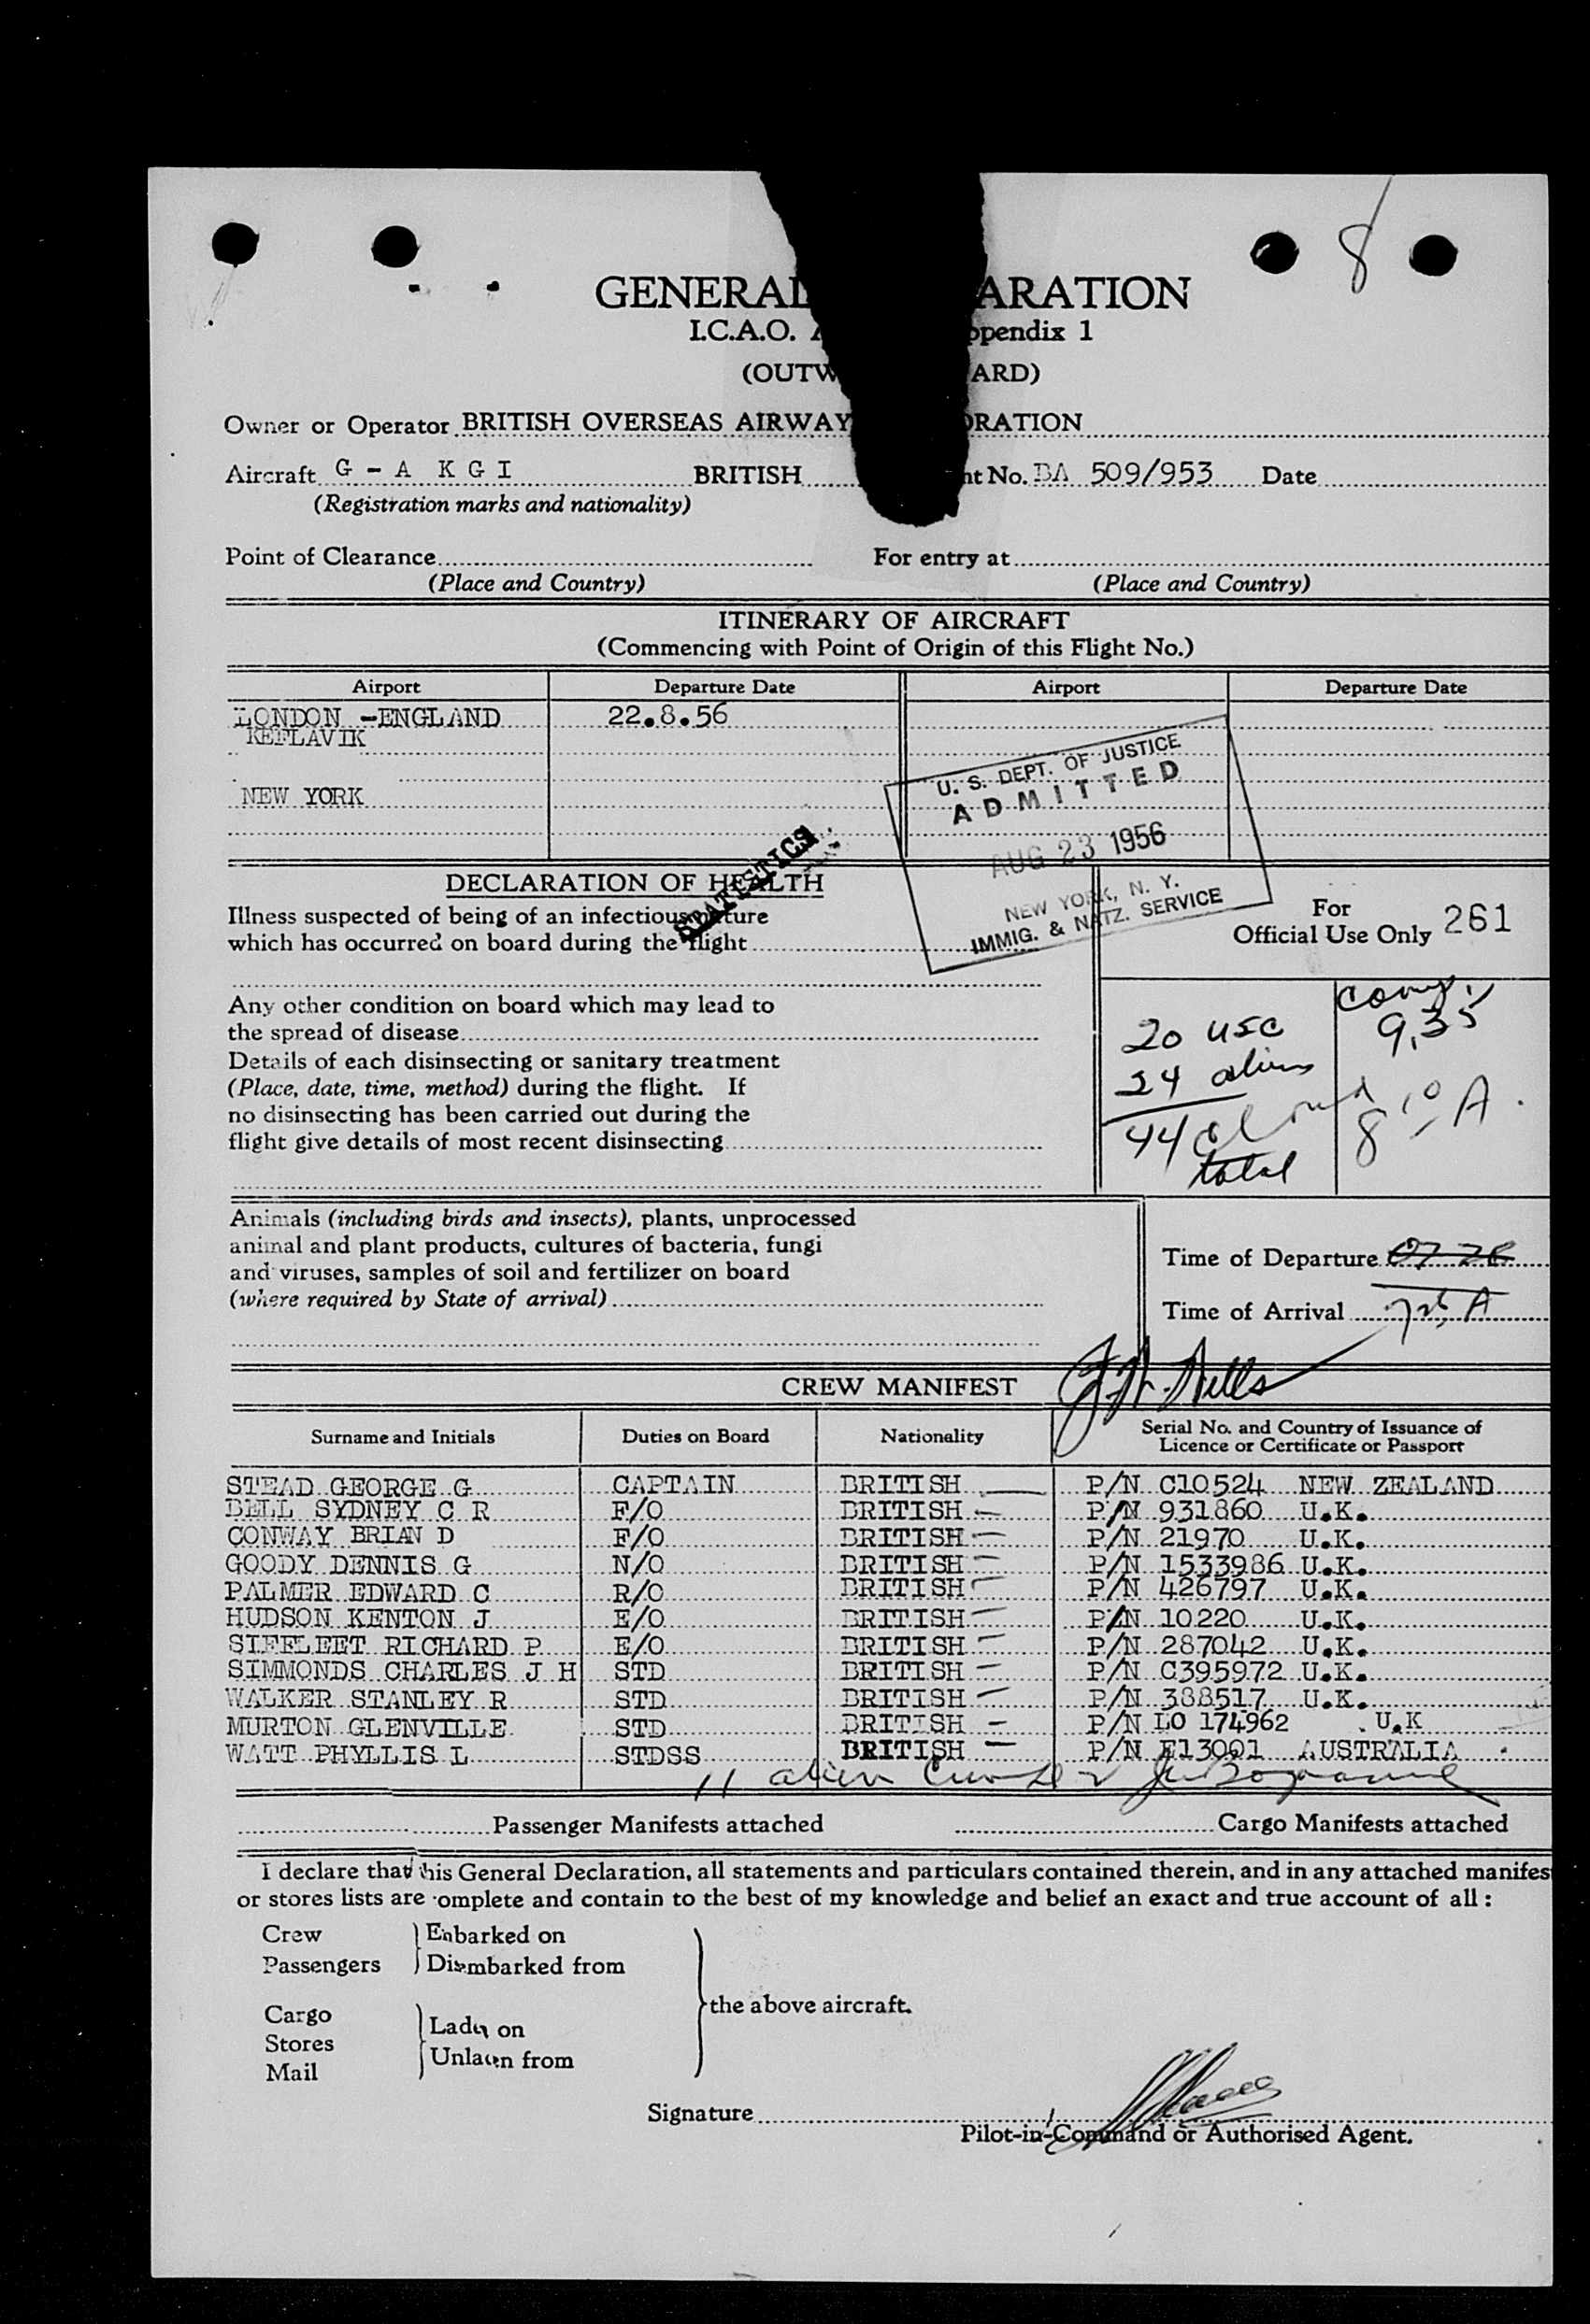 8
GENERAL ARATION
I.C.A.O. ppendix 1
(OUTW ARD)
Owner or Operator BRITISH OVERSEAS AIRWAY ORATION
Aircraft G - A K G I BRITISH ht No. BA 509/953 Date
(Registration marks and nationality)
Point of Clearance For entry at
(Place and Country) (Place and Country)
ITINERARY OF AIRCRAFT
(Commencing with Point of Origin of this Flight No.)
Airport Departure Date Airport Departure Date
LONDON -ENGLAND 22.8.56
KEFLAVIK
NEW YORK
U. S. DEPT. OF JUSTICE
ADMITTED
AUG 23 1956
NEW YORK, N. Y.
IMMIG. & NATZ. SERVICE
STATISTICS
DECLARATION OF HEALTH
Illness suspected of being of an infectious nature
which has occurred on board during the flight
For
Official Use Only 261
Any other condition on board which may lead to
the spread of disease
Details of each disinsecting or sanitary treatment
(Place, date, time, method) during the flight. If
no disinsecting has been carried out during the
flight give details of most recent disinsecting
20 USC
24 aliens
44
total
9,35
8 10 A.
Animals (including birds and insects), plants, unprocessed
animal and plant products, cultures of bacteria, fungi
and viruses, samples of soil and fertilizer on board
(where required by State of arrival)
Time of Departure
Time of Arrival
CREW MANIFEST
Surname and Initials Duties on Board Nationality Serial No. and Country of Issuance of
Licence or Certificate or Passport
STEAD GEORGE G CAPTAIN BRITISH P/N C10524 NEW ZEALAND
BELL SYDNEY C R F/O BRITISH P/N 931860 U.K.
CONWAY BRIAN D F/O BRITISH P/N 21970 U.K.
GOODY DENNIS G N/O BRITISH P/N 1533986 U.K.
PALMER EDWARD C R/O BRITISH P/N 426797 U.K.
HUDSON KENTON J E/O BRITISH P/N 10220 U.K.
SIFFLEET RICHARD P E/O BRITISH P/N 287042 U.K.
SIMMONDS CHARLES J H STD BRITISH P/N C395972 U.K.
WALKER STANLEY R STD BRITISH P/N 388517 U.K.
MURTON GLENVILLE STD BRITISH P/N LO 174962 U.K
WATT PHYLLIS L STDSS BRITISH P/N E13001 AUSTRALIA
11 alien
Passenger Manifests attached Cargo Manifests attached
I declare that this General Declaration, all statements and particulars contained therein, and in any attached manifes
or stores lists are omplete and contain to the best of my knowledge and belief an exact and true account of all :
Crew Embarked on
Passengers Disembarked from
the above aircraft.
Cargo
Stores Laden on
Mail Unladen from
Signature
Pilot-in-Command or Authorised Agent.